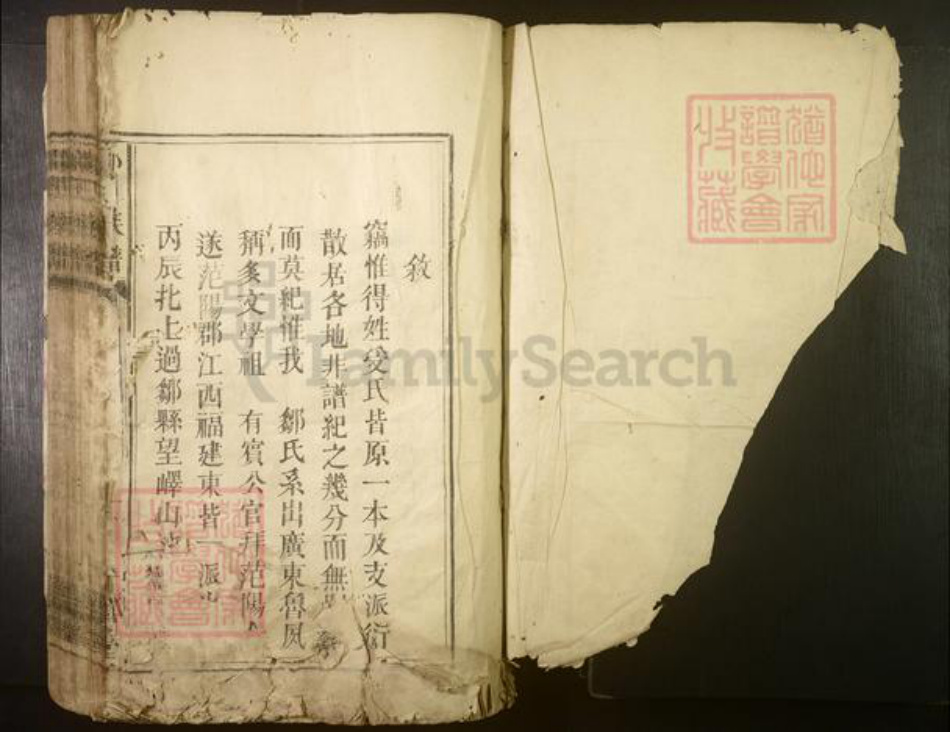 敘
竊惟得姓受氏皆原一本及支派衍
散居各地非譜紀之幾分而無
而莫紀惟我 鄒氏系出廣東魯風
稱多文學祖 有賓公官拜范陽
遂范陽郡江西福建東皆一派
丙辰北上過鄒縣望嶧山
族譜
猶他家
譜學會
收藏
猶他家
譜學會
收藏
FamilySearch